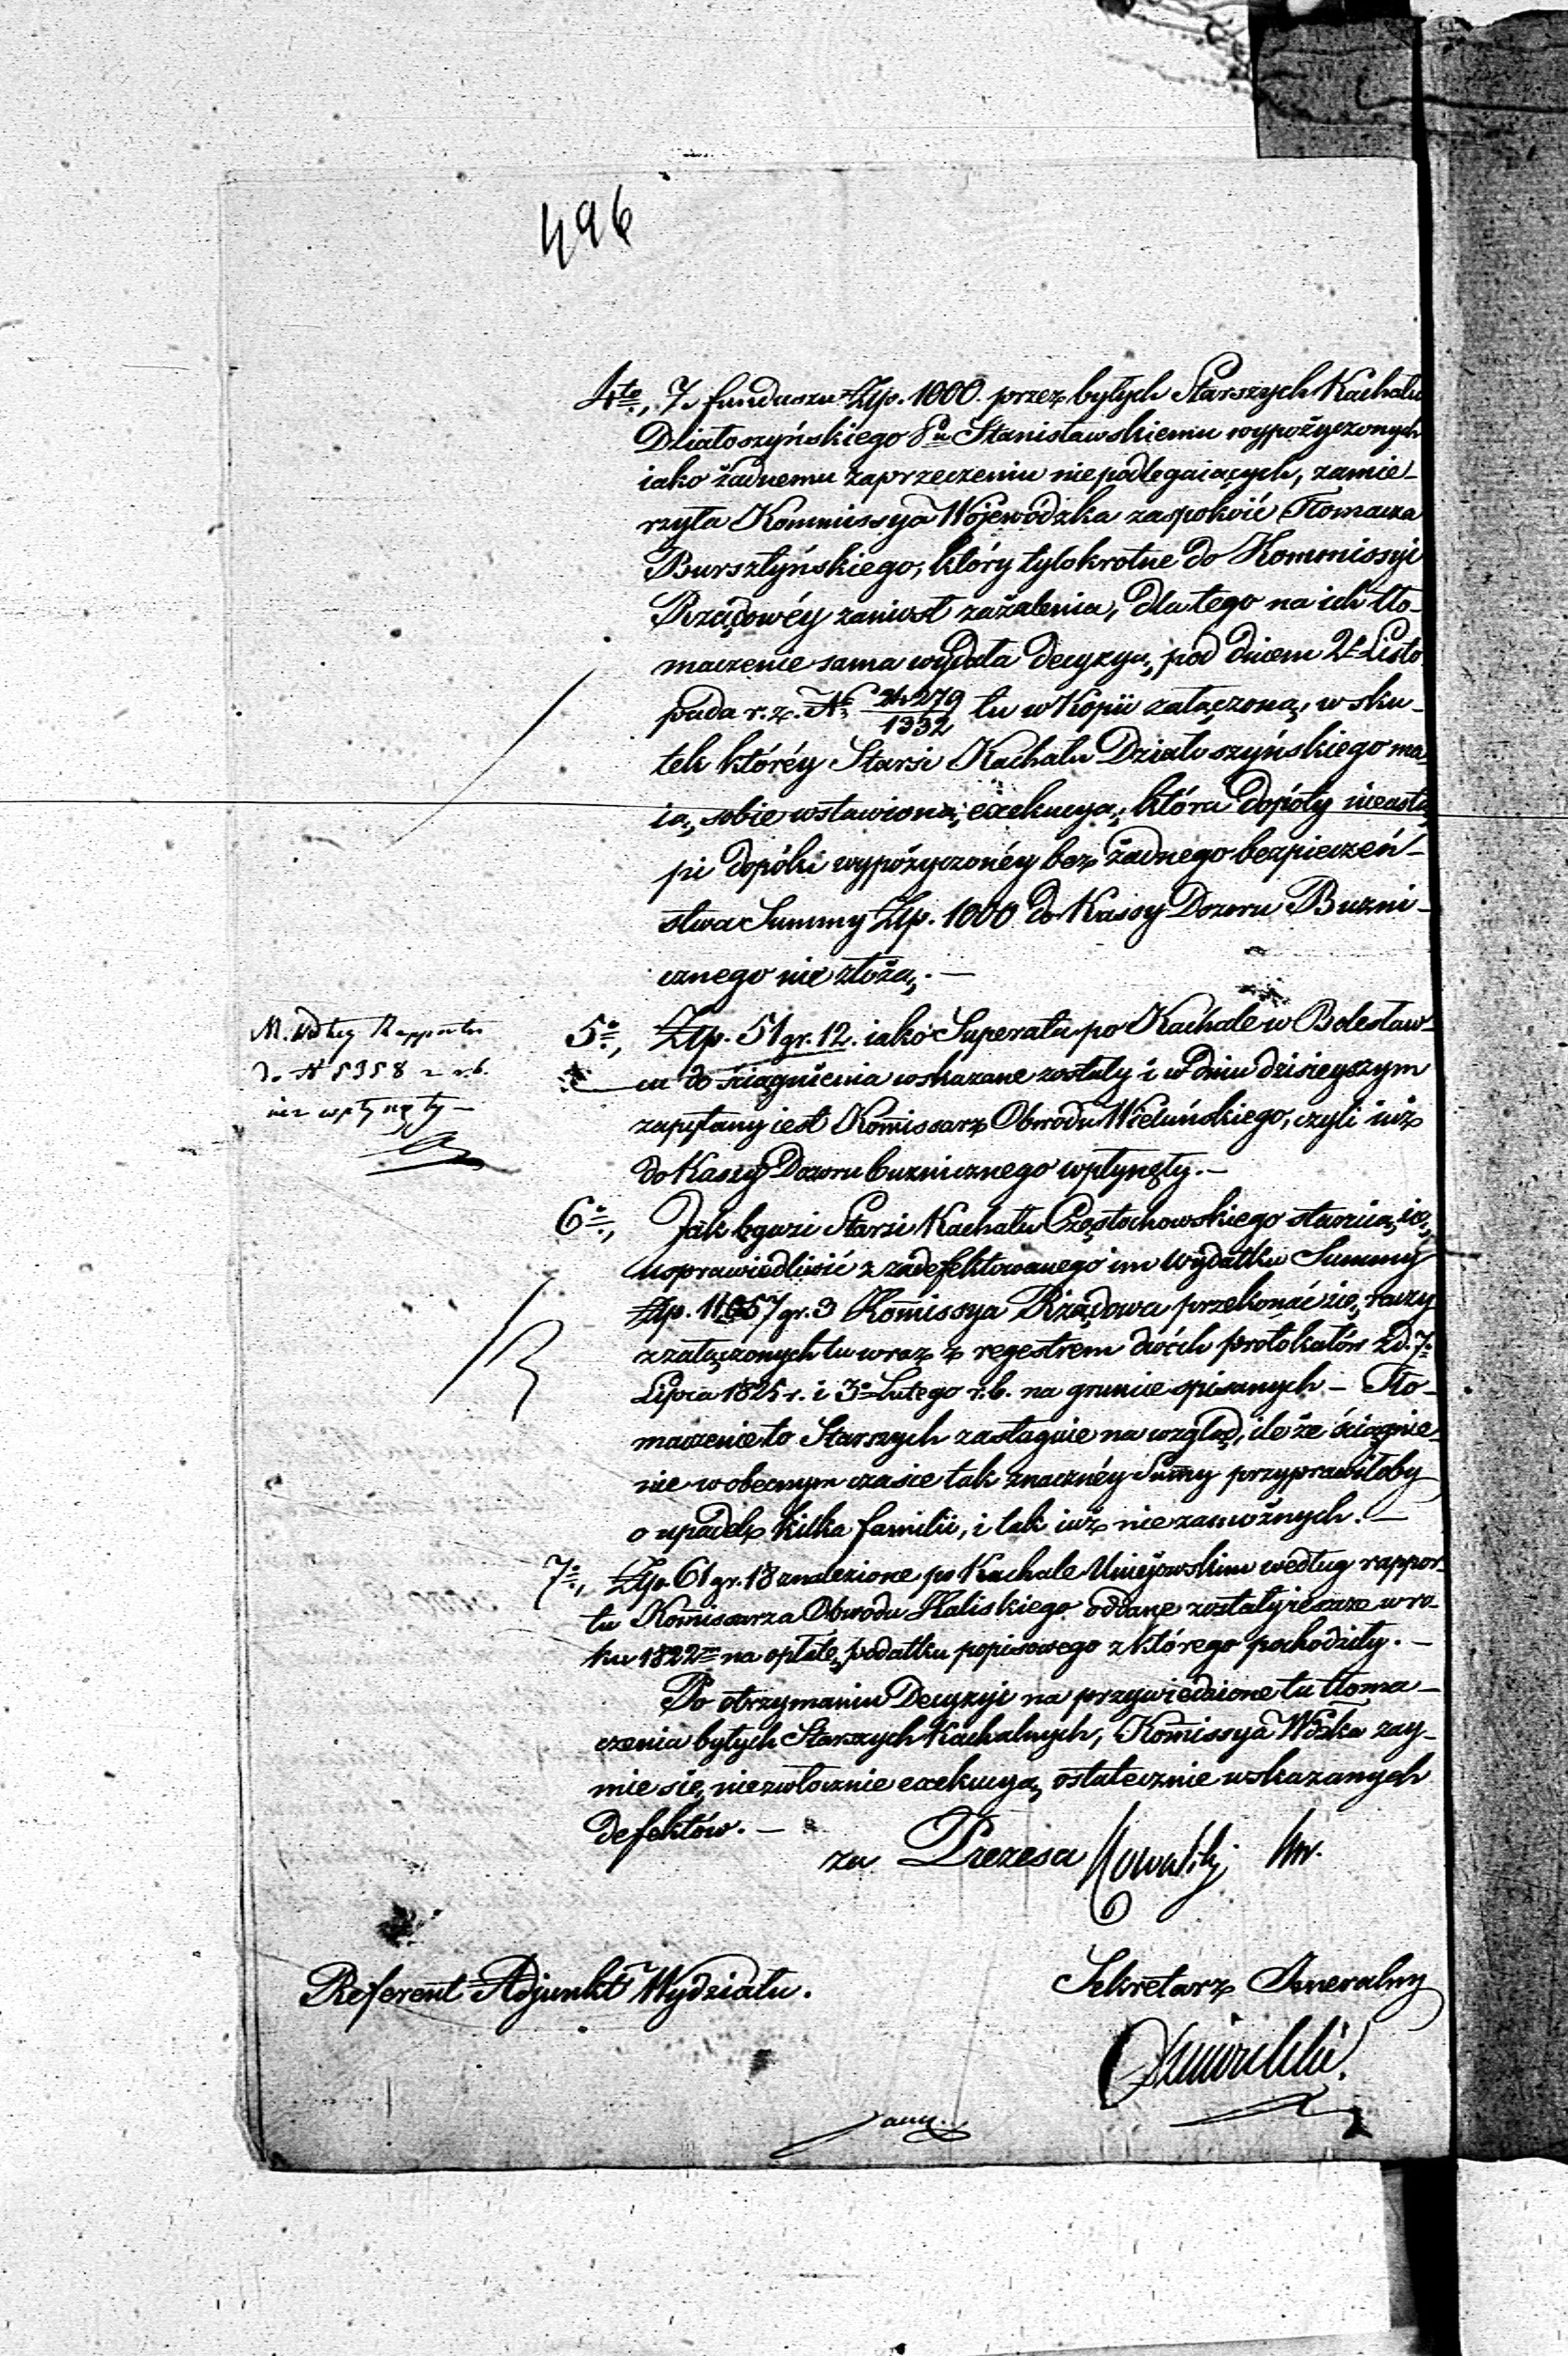 496
4to, Z funduszu Złp. 1000. przez byłych Starszych Kachału
Działoszyńskiego Pu Stanisławskiemu wypożyczonych
iako żadnemu zaprzeczeniu niepodlegaiących, zamie-
rzyła Kommissya Wojewódzka zaspokoić Tłomacza
Bursztyńskiego, który tylokrotne do Kommissyi
Rządowéy zaniosł zażalenia, dla tego na ich tło-
maczenie sama wydała decyzyą, pod dniem 2o Listo
pada r. z. No 24279/1332 tu w Kopii załączoną, w sku-
tek któréy Starsi Kachału Działoszyńskiego ma
ią sobie wstawioną exekucyą, która dopóty nieustą
pi dopóki wypożyczonéy bez żadnego bezpieczeń-
stwa Summy Złp. 1000 do Kassy Dozoru Buzni-
cznego nie złożą. —
M. Według Rapportu
do N 5358 z r. b.
nie wpłynęły —
5o, Złp. 51 gr. 12. iako Superata po Kachale w Bolesław-
cu do ściągnienia wskazane zostały i w dniu dzisieyszym
zapytany iest Kom̃issarz Obwodu Wieluńskiego, czyli iuż
do Kassy Dozoru buznicznego wpłynęły. —
6o, Jak byli Starsi Kachału Częstochowskiego staraią się,
usprawiedliwić z zadefektowanego im wydatku Summy
Złp. 11657 gr. 3 Kom̃issya Rządowa przekonać się, raczy
z załączonych tu wraz z regestrem dwóch protokułów z d. 7o
Lipca 1825 r. i 3o Lutego r. b. na gruncie spisanych — Tło-
maczenie to Starszych zasługuie na wzgląd, ile że ściągnie-
nie w obecnym czasie tak znacznéy Sum̃y przyprawiłoby
o upadek kilka familii, i tak iuż niezamożnych. —
7o, Złp. 61 gr. 18 znalezione po Kachale Uniejowskim według rappor-
tu Kom̃issarza Obwodu Kaliskiego oddane zostały ieszcze w ro-
ku 1822m na opłatę podatku popisowego z którego pochodziły. —
Po otrzymaniu Decyzyi na przywiedzione tu tłoma-
czenia byłych Starszych Kachalnych, Kom̃issya Wdzka zay-
mie się, niezwłocznie exekucyą ostatecznie wskazanych
defektów. —
za Prezesa
Referent Adjunkt Wydziału.
Sekretarz Jeneralny